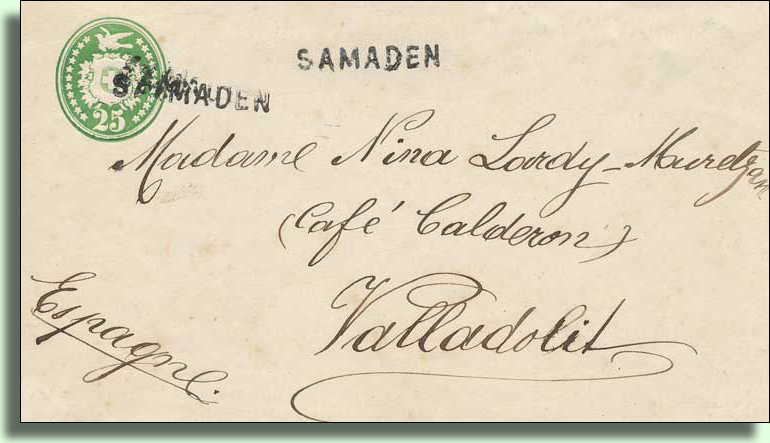 SAMADEN
SAMADEN
25
Madame Nina Lardy-
(Café Calderon)
Valladolit
Espagne.